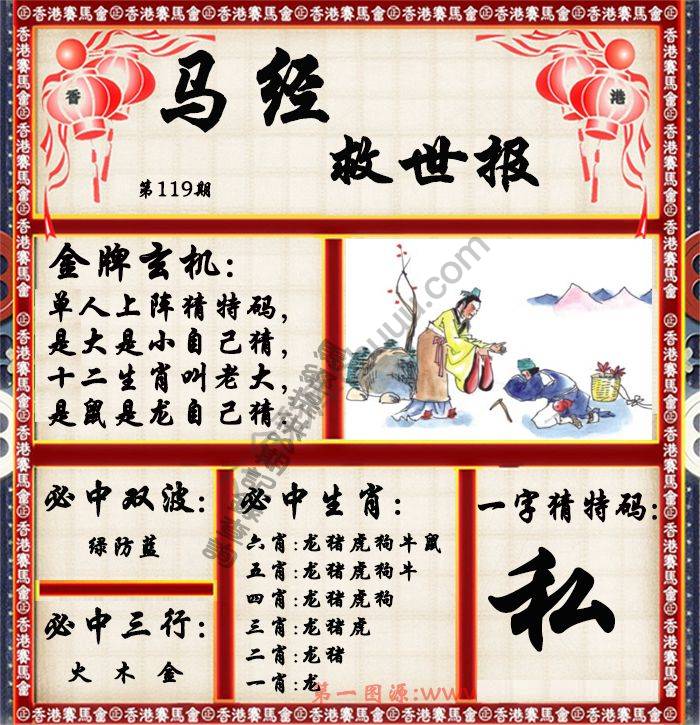 香港賽馬會
香
港
马经
救世报
第119期
金牌玄机:
单人上阵猜特码,
是大是小自己猜,
十二生肖叫老大,
是鼠是龙自己猜.
必中双波:
绿防蓝
必中三行:
火木金
必中生肖:
六肖:龙猪虎狗牛鼠
五肖:龙猪虎狗牛
四肖:龙猪虎狗
三肖:龙猪虎
二肖:龙猪
一肖:龙
一字猜特码:
私
第一图源:www